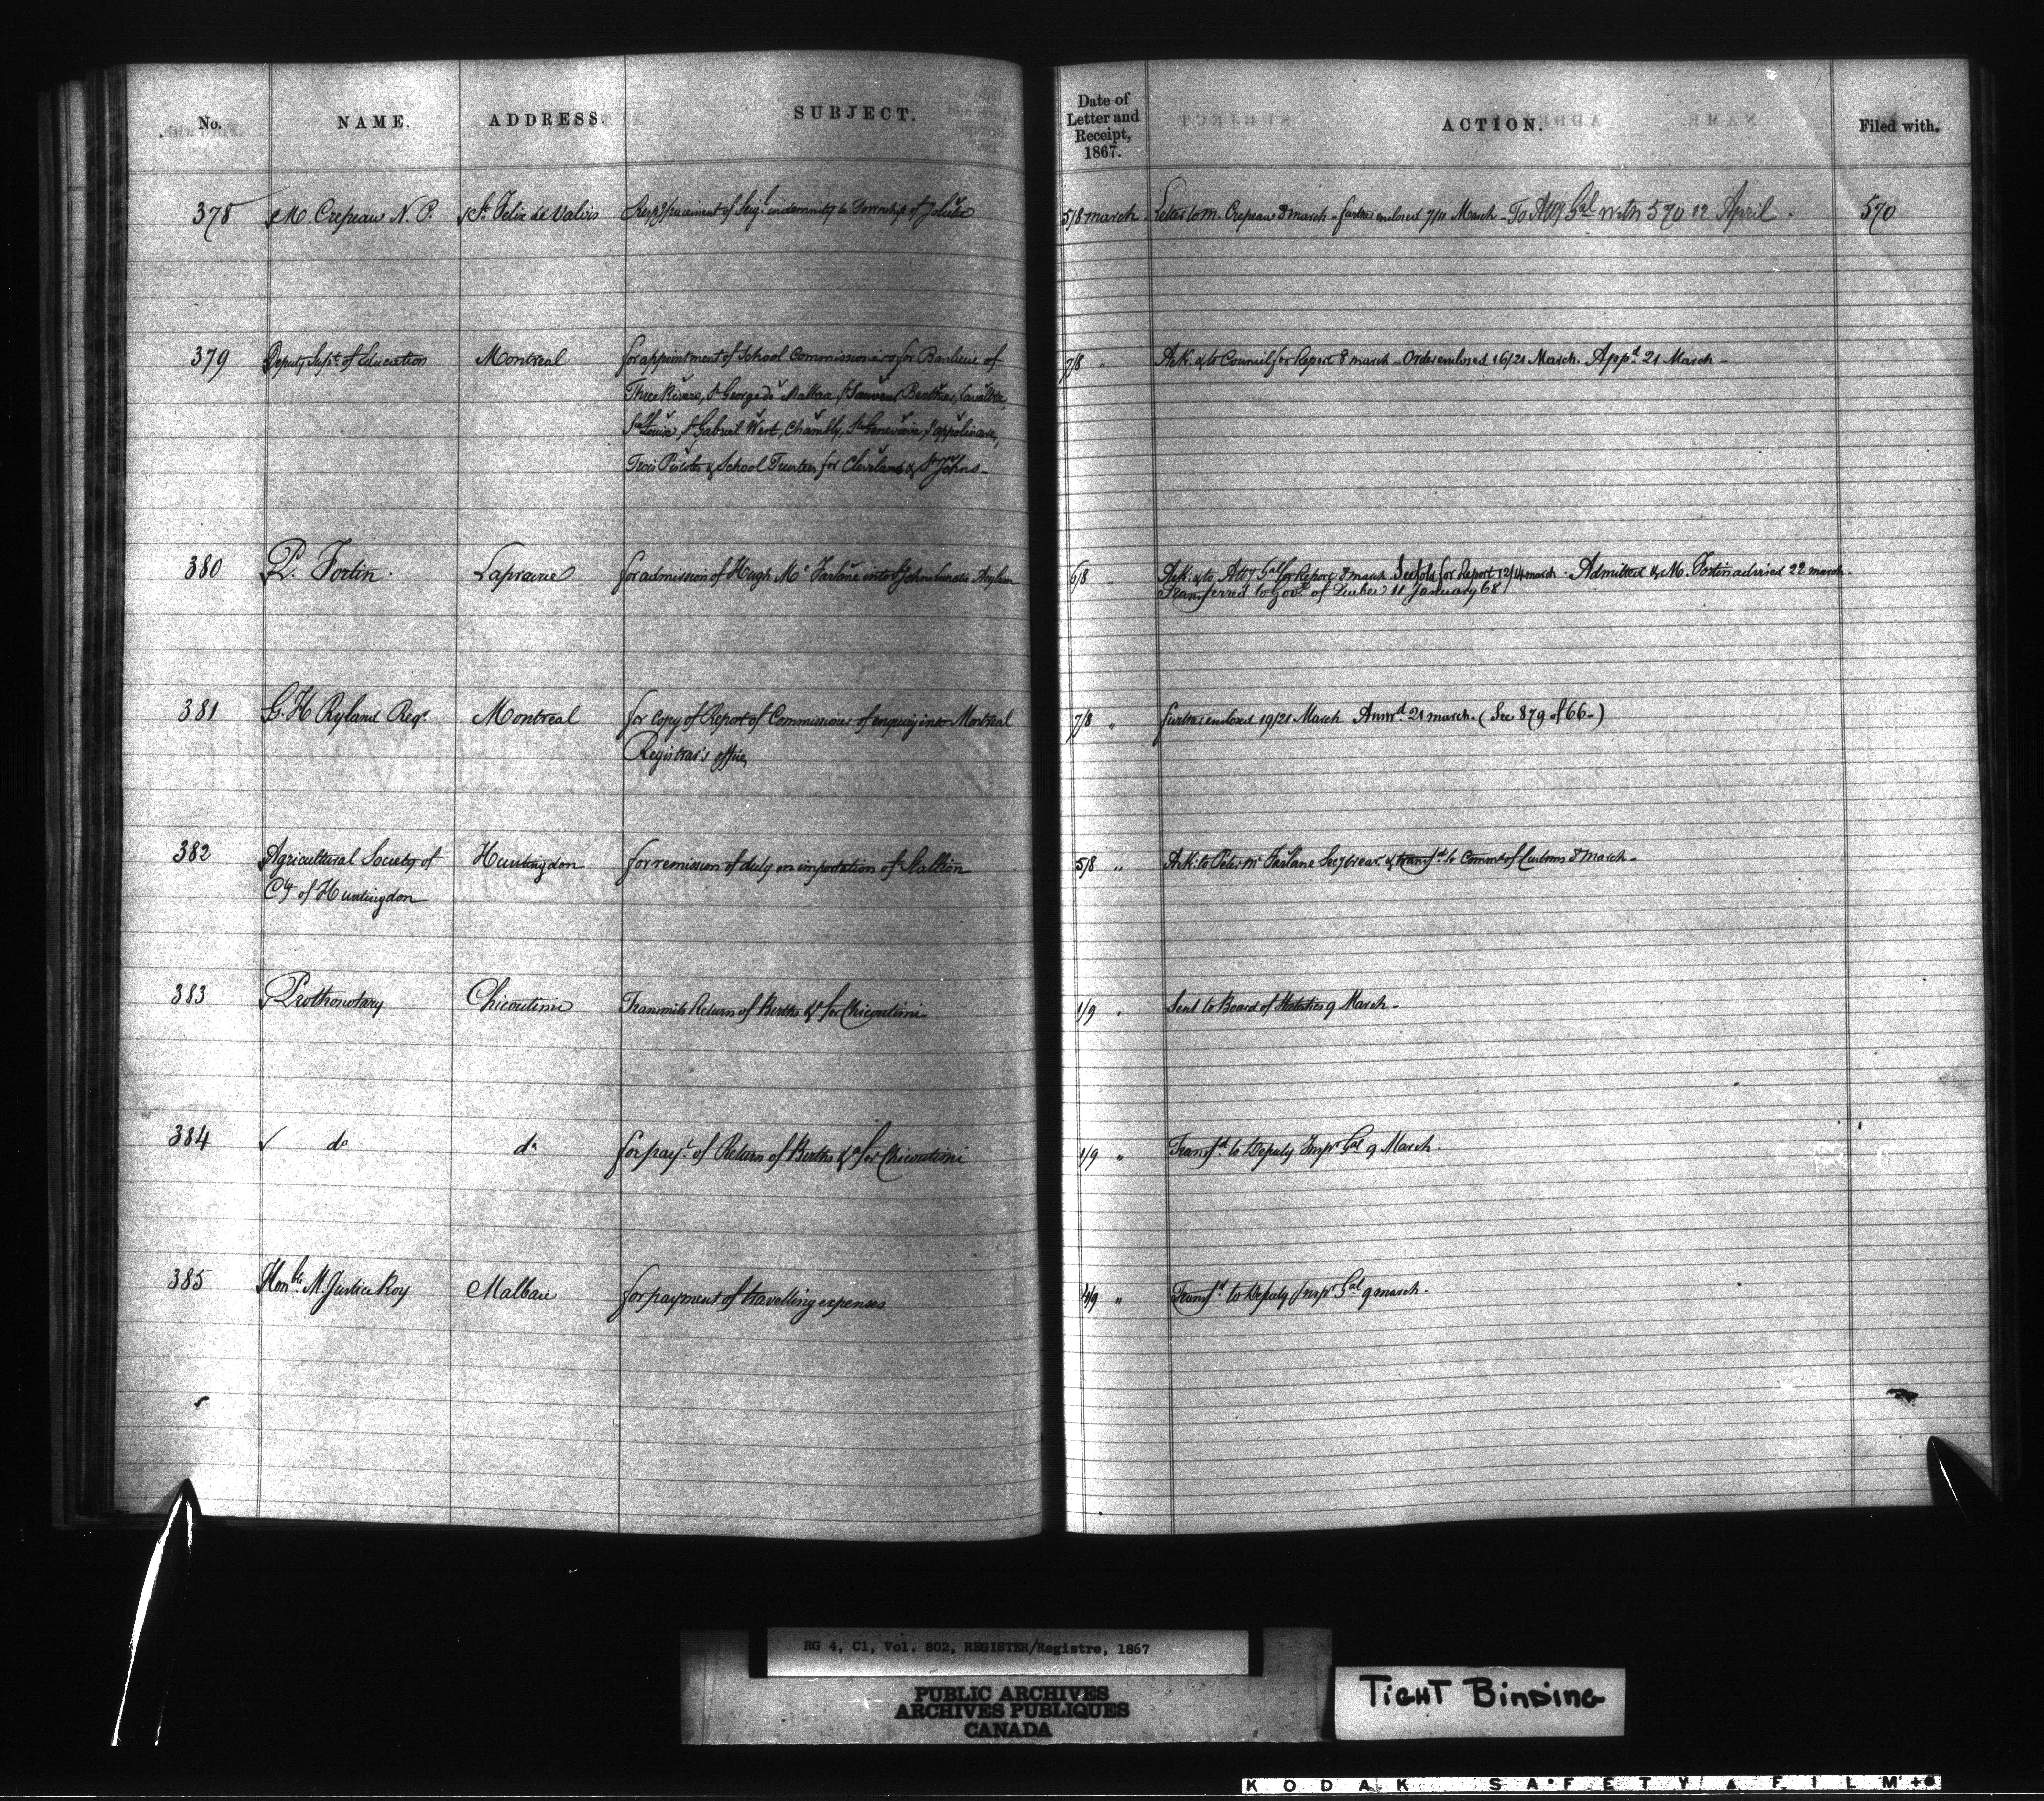 No. NAME. ADDRESS. SUBJECT. Date of Letter and Receipt, 1867. ACTION. Filed with.
378 M. Crepeau N. P. St. Felix de Valois Resp.g payment of Seig.l indemnity to Township of Joliette 5/8 march Letter to M. Crepeau 8 march - further enclosed 7/11 March - To Atty Gal with 570 12 April. 570
379 Deputy Supt. of Education Montreal for appointment of School Commissioners for Banlieue of 7/8 " Ack: & to Council for Report 8 march - Order enclosed 16/21 March. Appd. 21 March -
Three Rivers, St George de Malbaa, St Sauveur Berthier, Lavaltrie,
Ste Louise, St Gabriel West, Chambly, Ste Genevieve, St appolinaire,
Trois Pistoles & School Trustees for Cleveland & St Johns -
380 P. Fortin. Laprairie for admission of Hugh Mc Farlane into St John lunatic Asylum 6/8 Ack: & to Atty Gal for Report 8 march See fold for Report 12/14 march - Admitted & M. Fortin advised 22 march.
Transferred to Govt. of Quebec 11 January 68
381 G. H Ryland Regr. Montreal for Copy of Report of Commissioner of enquiry into Montreal 7/8 " further enclosed 19/21 March Answd. 21 march. (See 879 of 66 -)
Registrar's office,
382 Agricultural Society of Huntingdon for remission of duty on importation of Stallion 5/8 " Ack: to Peter Mc Farlane Secy treasr & transfd. to Commr of Customs 8 March -
Cty of Huntingdon
383 Prothonotary Chicoutimi Transmits Return of Births &c for Chicoutimi 1/9 " Sent to Board of Statistics 9 March -
384 do do for payt. of Return of Births &c for Chicoutimi 1/9 " Transfd. to Deputy Inspr Gal 9 March.
385 Honble. M. Justice Roy Malbaie for payment of travelling expenses 4/9 " Transfd. to Deputy Inspr Gal 9 march.
RG 4, C1, Vol. 802, REGISTER/Registre, 1867
PUBLIC ARCHIVES
ARCHIVES PUBLIQUES
CANADA
TIGHT BINDING
KODAK SAFETY FILM